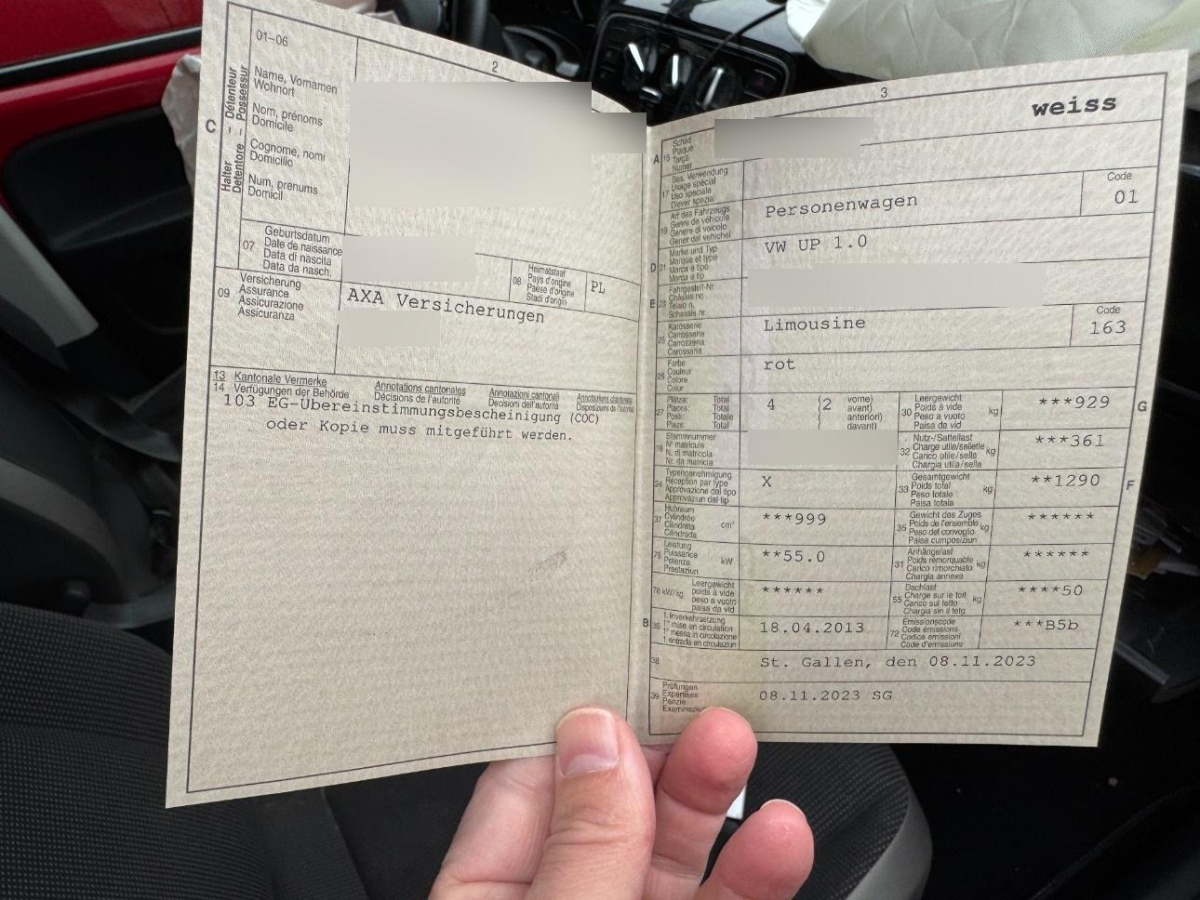 01-06
2
C
Halter
Détenteur
Detentore
Possessur
Name, Vornamen
Wohnort
Nom, prénoms
Domicile
Cognome, nomi
Domicilio
Num, prenums
Domicil
07
Geburtsdatum
Date de naissance
Data di nascita
Data da nasch.
08
Heimatstaat
Pays d'origine
Paese d'origine
Stadi d'origin
PL
09
Versicherung
Assurance
Assicurazione
Assicuranza
AXA Versicherungen
13 Kantonale Vermerke
14 Verfügungen der Behörde
Annotations cantonales
Décisions de l'autorité
Annotazioni cantonali
Decisioni dell'autorità
103 EG-Übereinstimmungsbescheinigung (COC)
oder Kopie muss mitgeführt werden.
3
weiss
A
15
Schild
Plaque
Targa
Numer
17
Bes. Verwendung
Usage spécial
Uso speciale
Diever spezial
19
Art des Fahrzeugs
Genre de véhicule
Genere di veicolo
Gener dal vehichel
Personenwagen
Code
01
D
21
Marke und Typ
Marque et type
Marca e tipo
Marca e tip
VW UP 1.0
E
23
Fahrgestell-Nr.
Châssis no
Telaio n.
Schassis nr.
25
Karosserie
Carrosserie
Carrozzeria
Carossaria
Limousine
Code
163
26
Farbe
Couleur
Colore
Colur
rot
27
Plätze: Total
Places: Total
Posti: Totale
Plazs: Total
4
(2
vorne)
avant)
anteriori)
davant)
30
Leergewicht
Poids à vide
Peso a vuoto
Paisa da vid
kg
***929
G
18
Stammnummer
N° matricule
N. di matricola
Nr. da matricla
32
Nutz-/Sattellast
Charge utile/sellette
Carico utile/sella
Chargia utila/sella
kg
***361
24
Typengenehmigung
Réception par type
Approvazione del tipo
Approvaziun dal tip
X
33
Gesamtgewicht
Poids total
Peso totale
Paisa totala
kg
**1290
F
37
Hubraum
Cylindrée
Cilindrata
Cilindrada
cm³
***999
35
Gewicht des Zuges
Poids de l'ensemble
Peso del convoglio
Paisa cumposiziun
kg
******
76
Leistung
Puissance
Potenza
Prestaziun
kW
**55.0
31
Anhängelast
Poids remorquable
Carico rimorchiato
Chargia annexa
kg
******
78 kW/kg
Leergewicht
poids à vide
peso a vuoto
paisa da vid
******
55
Dachlast
Charge sur le toit
Carico sul tetto
Chargia sin il tetg
kg
****50
B
36
1. Inverkehrsetzung
1re mise en circulation
1a messa in circolazione
1. entrada en circulaziun
18.04.2013
72
Emissionscode
Code émissions
Codice emissioni
Code d'emissiuns
***B5b
38
St. Gallen, den 08.11.2023
39
Prüfungen
Expertises
Perizie
Examinaziuns
08.11.2023 SG